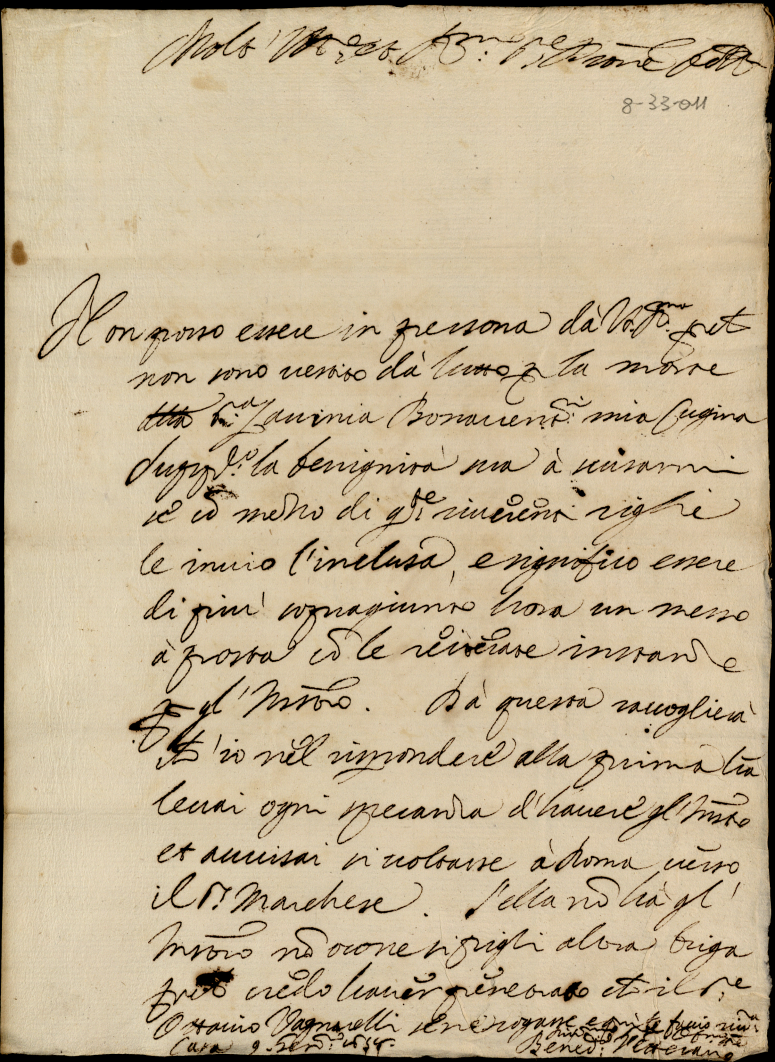 Molt' Ill.re et R.mo S.re e Pron Col.mo
8-33-011
Non posso essere in persona dà V.S. R.ma per che
non sono vestito dà lutto p la morte
della S.ra Lavinia Bonaven.ni mia Cugina
Supp.co la benignità sua à scusarmi
se cō mezzo di q.ste riverenti righe
le invio l'inclusa, e significo essere
di più sopragiunto hora un messo
à posta cō le reiterate instanze
p gl'Instro. Dà questa raccoglierà
ch'io nel rispondere alla prima lra
levai ogni speranza d'havere gl'Instro
et avvisai si voltasse à Roma verso
il S.r Marchese. S'ella nō hà gl'
Instro nō occorre si pigli altra briga
però credo haver penetrato che il S.re
Ottavio Vagnarelli
Casa 9
Bened.o